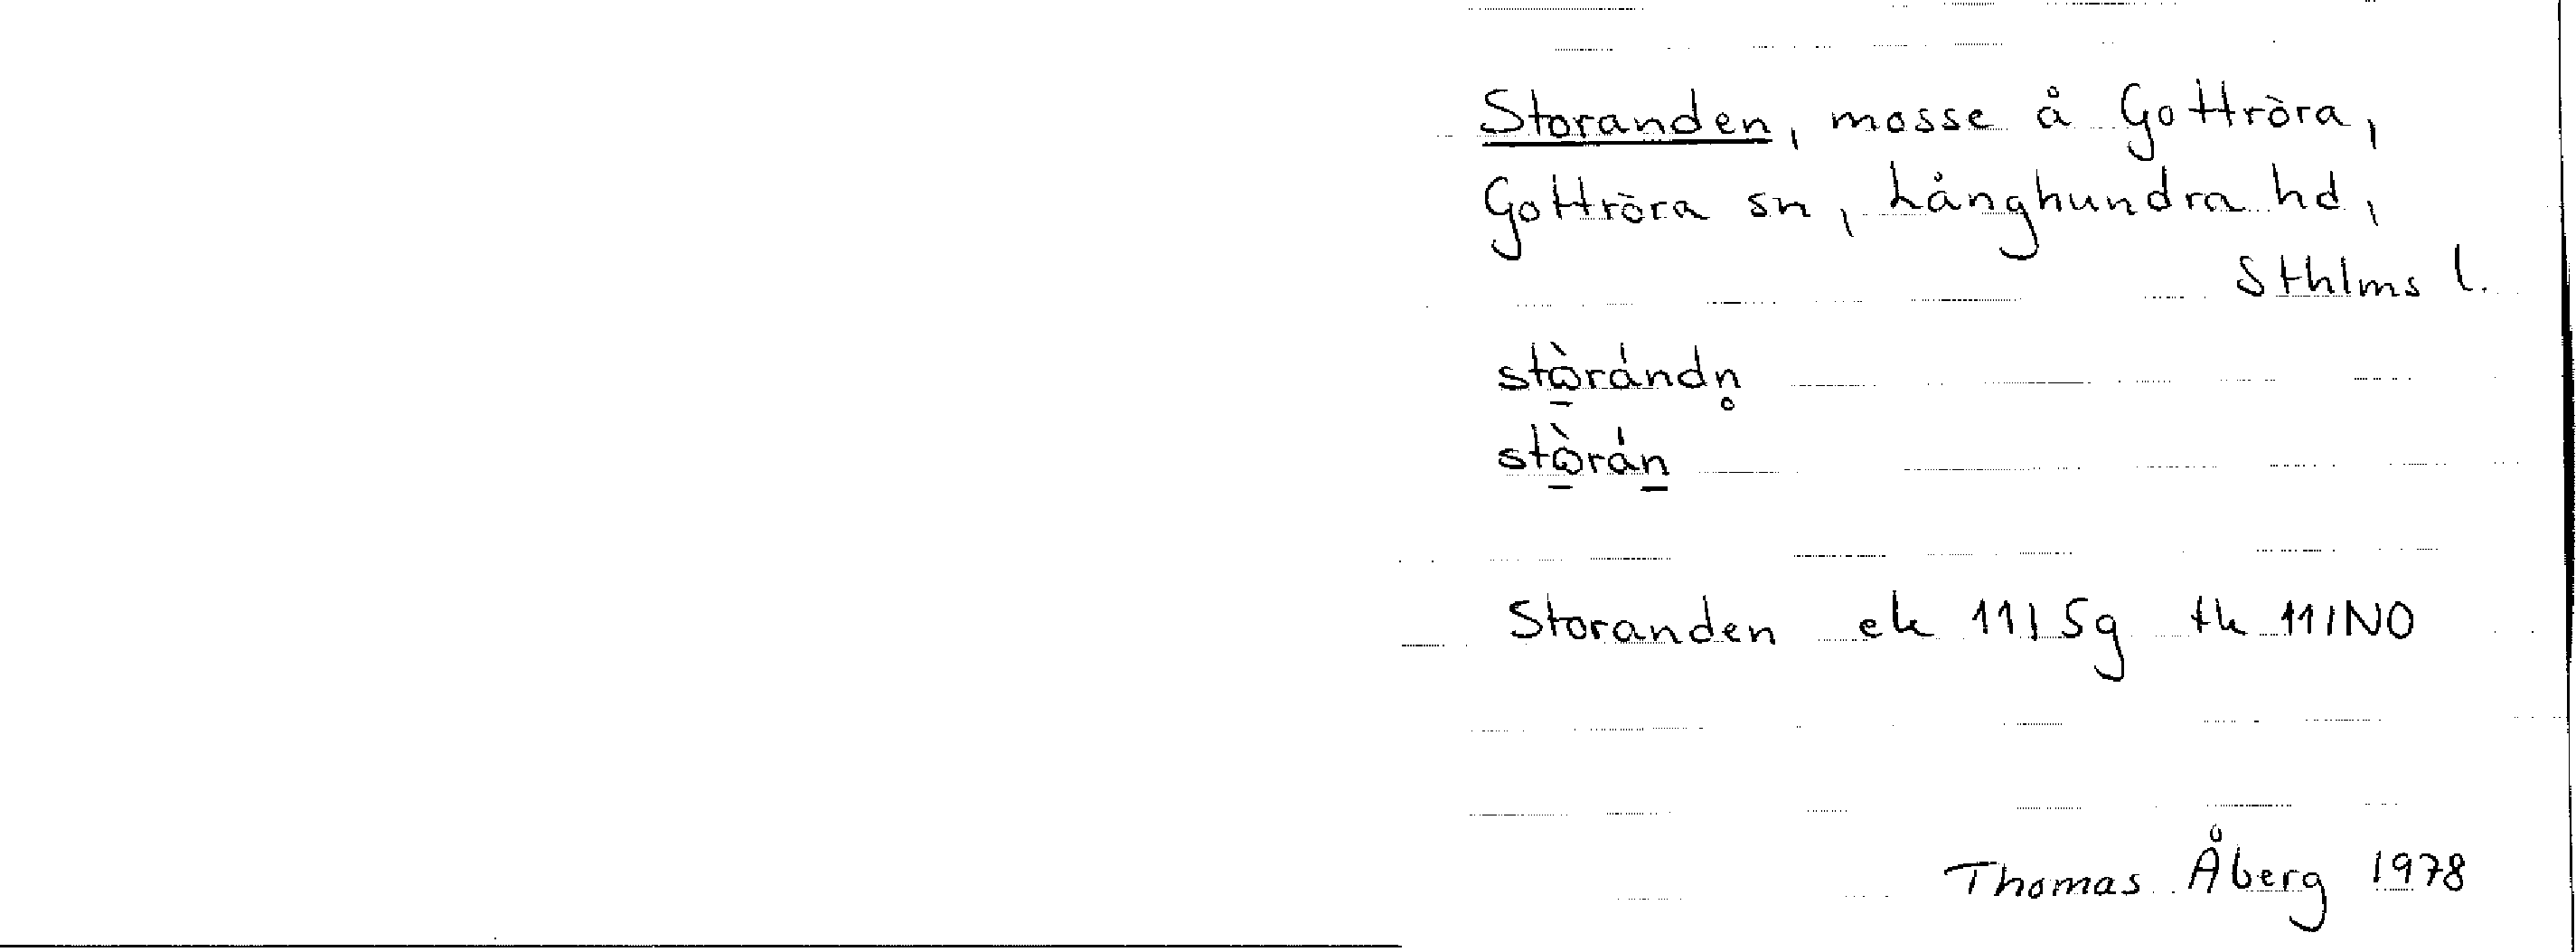 Storanden, mosse å Gottröra,
Gottröra sn, Långhundra hd,
Sthlms l.
stòrándn̥
stòrán
Storanden ek 11I5g tk 11INO
Thomas Åberg 1978